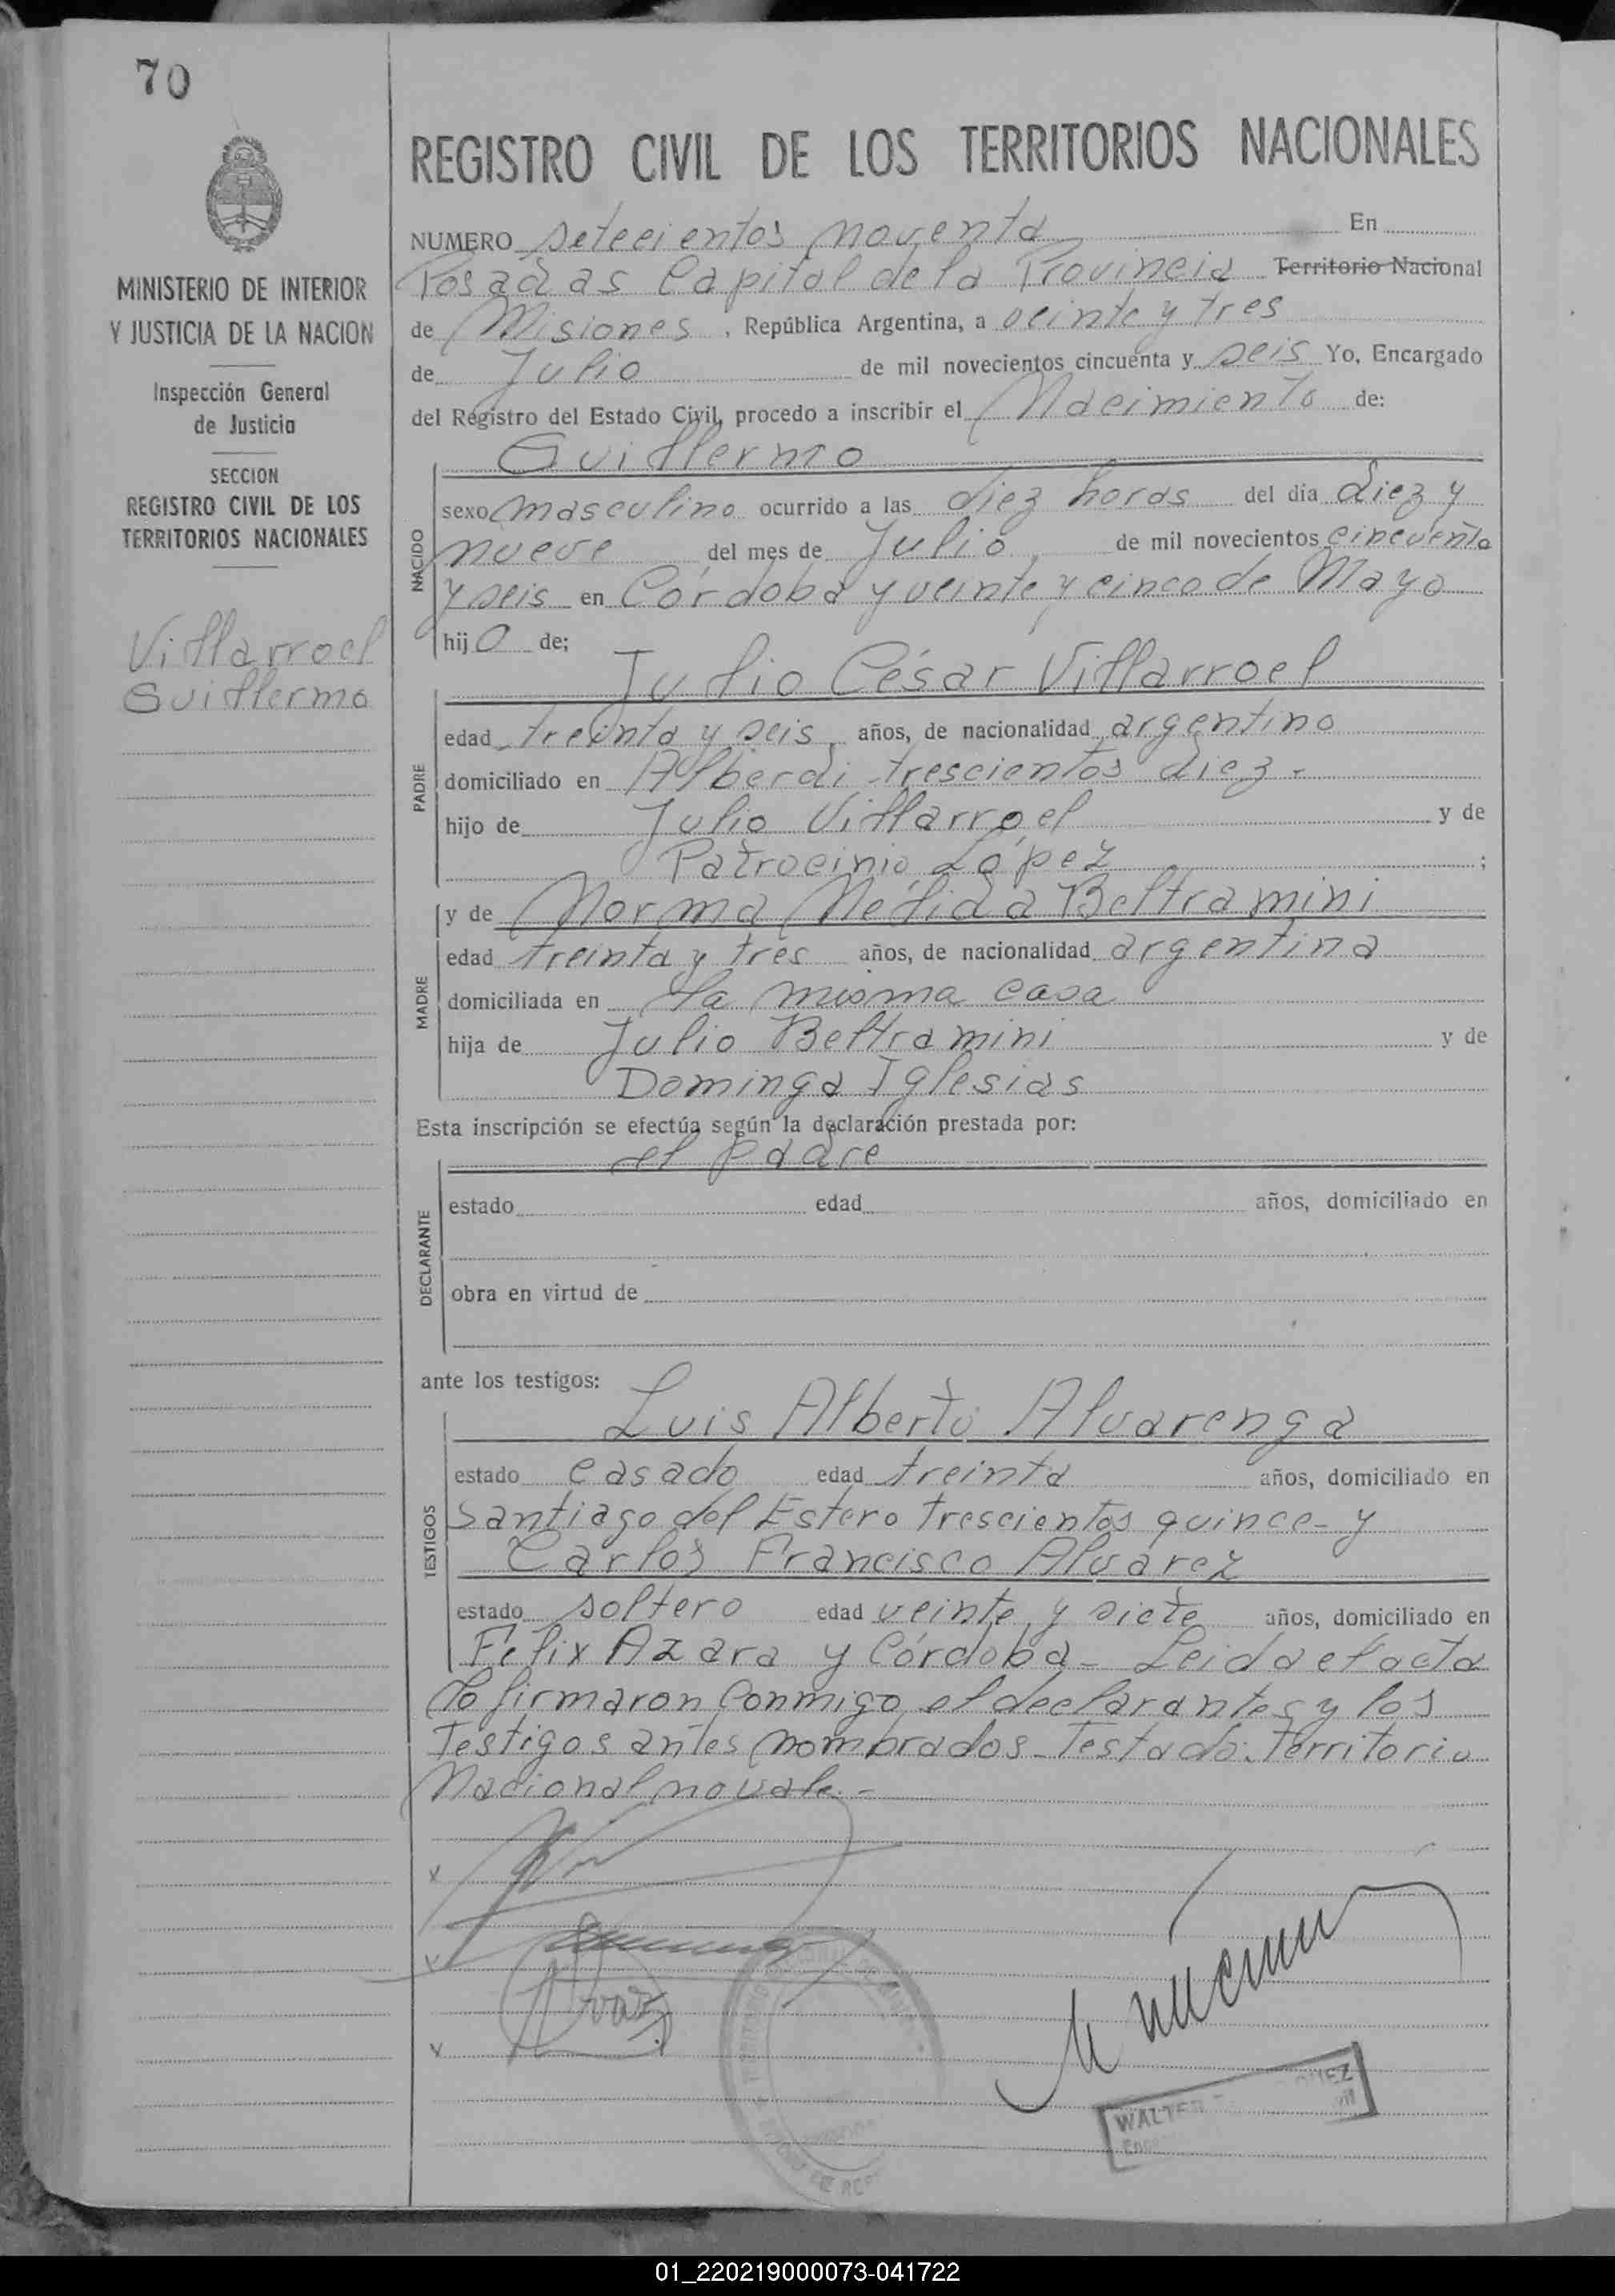 70
MINISTERIO DE INTERIOR
Y JUSTICIA DE LA NACION
Inspección General
de Justicia
SECCION
REGISTRO CIVIL DE LOS
TERRITORIOS NACIONALES
Villarroel
Guillermo
REGISTRO CIVIL DE LOS TERRITORIOS NACIONALES
NUMERO setecientos noventa En
Posadas Capital de la Provincia Territorio Nacional
de Misiones, República Argentina, a veinte y tres
de Julio de mil novecientos cincuenta y seis Yo, Encargado
del Registro del Estado Civil, procedo a inscribir el Nacimiento de:
NACIDO
Guillermo
sexo masculino ocurrido a las diez horas del día diez y
nueve del mes de Julio, de mil novecientos cincuenta
y seis en Córdoba y veinte y cinco de Mayo
hijo de;
PADRE
Julio César Villarroel
edad treinta y seis, años, de nacionalidad argentino
domiciliado en Alberdi trescientos diez-
hijo de Julio Villarroel y de
Patrocinio López ;
MADRE
y de Norma Nélida Beltramini
edad treinta y tres años, de nacionalidad argentina
domiciliada en la misma casa
hija de Julio Beltramini y de
Dominga Iglesias
Esta inscripción se efectúa según la declaración prestada por:
DECLARANTE
el padre
estado edad años, domiciliado en
obra en virtud de
ante los testigos:
TESTIGOS
Luis Alberto Alvarenga
estado casado edad treinta años, domiciliado en
Santiago del Estero trescientos quince- y
Carlos Francisco Alvarez
estado soltero edad veinte y siete años, domiciliado en
Félix Azara y Córdoba- Leida el acta
lo firmaron conmigo el declarante, y los
Testigos antes nombrados- Testado: Territorio
Nacional no vale.-
WALTER
01_220219000073-041722